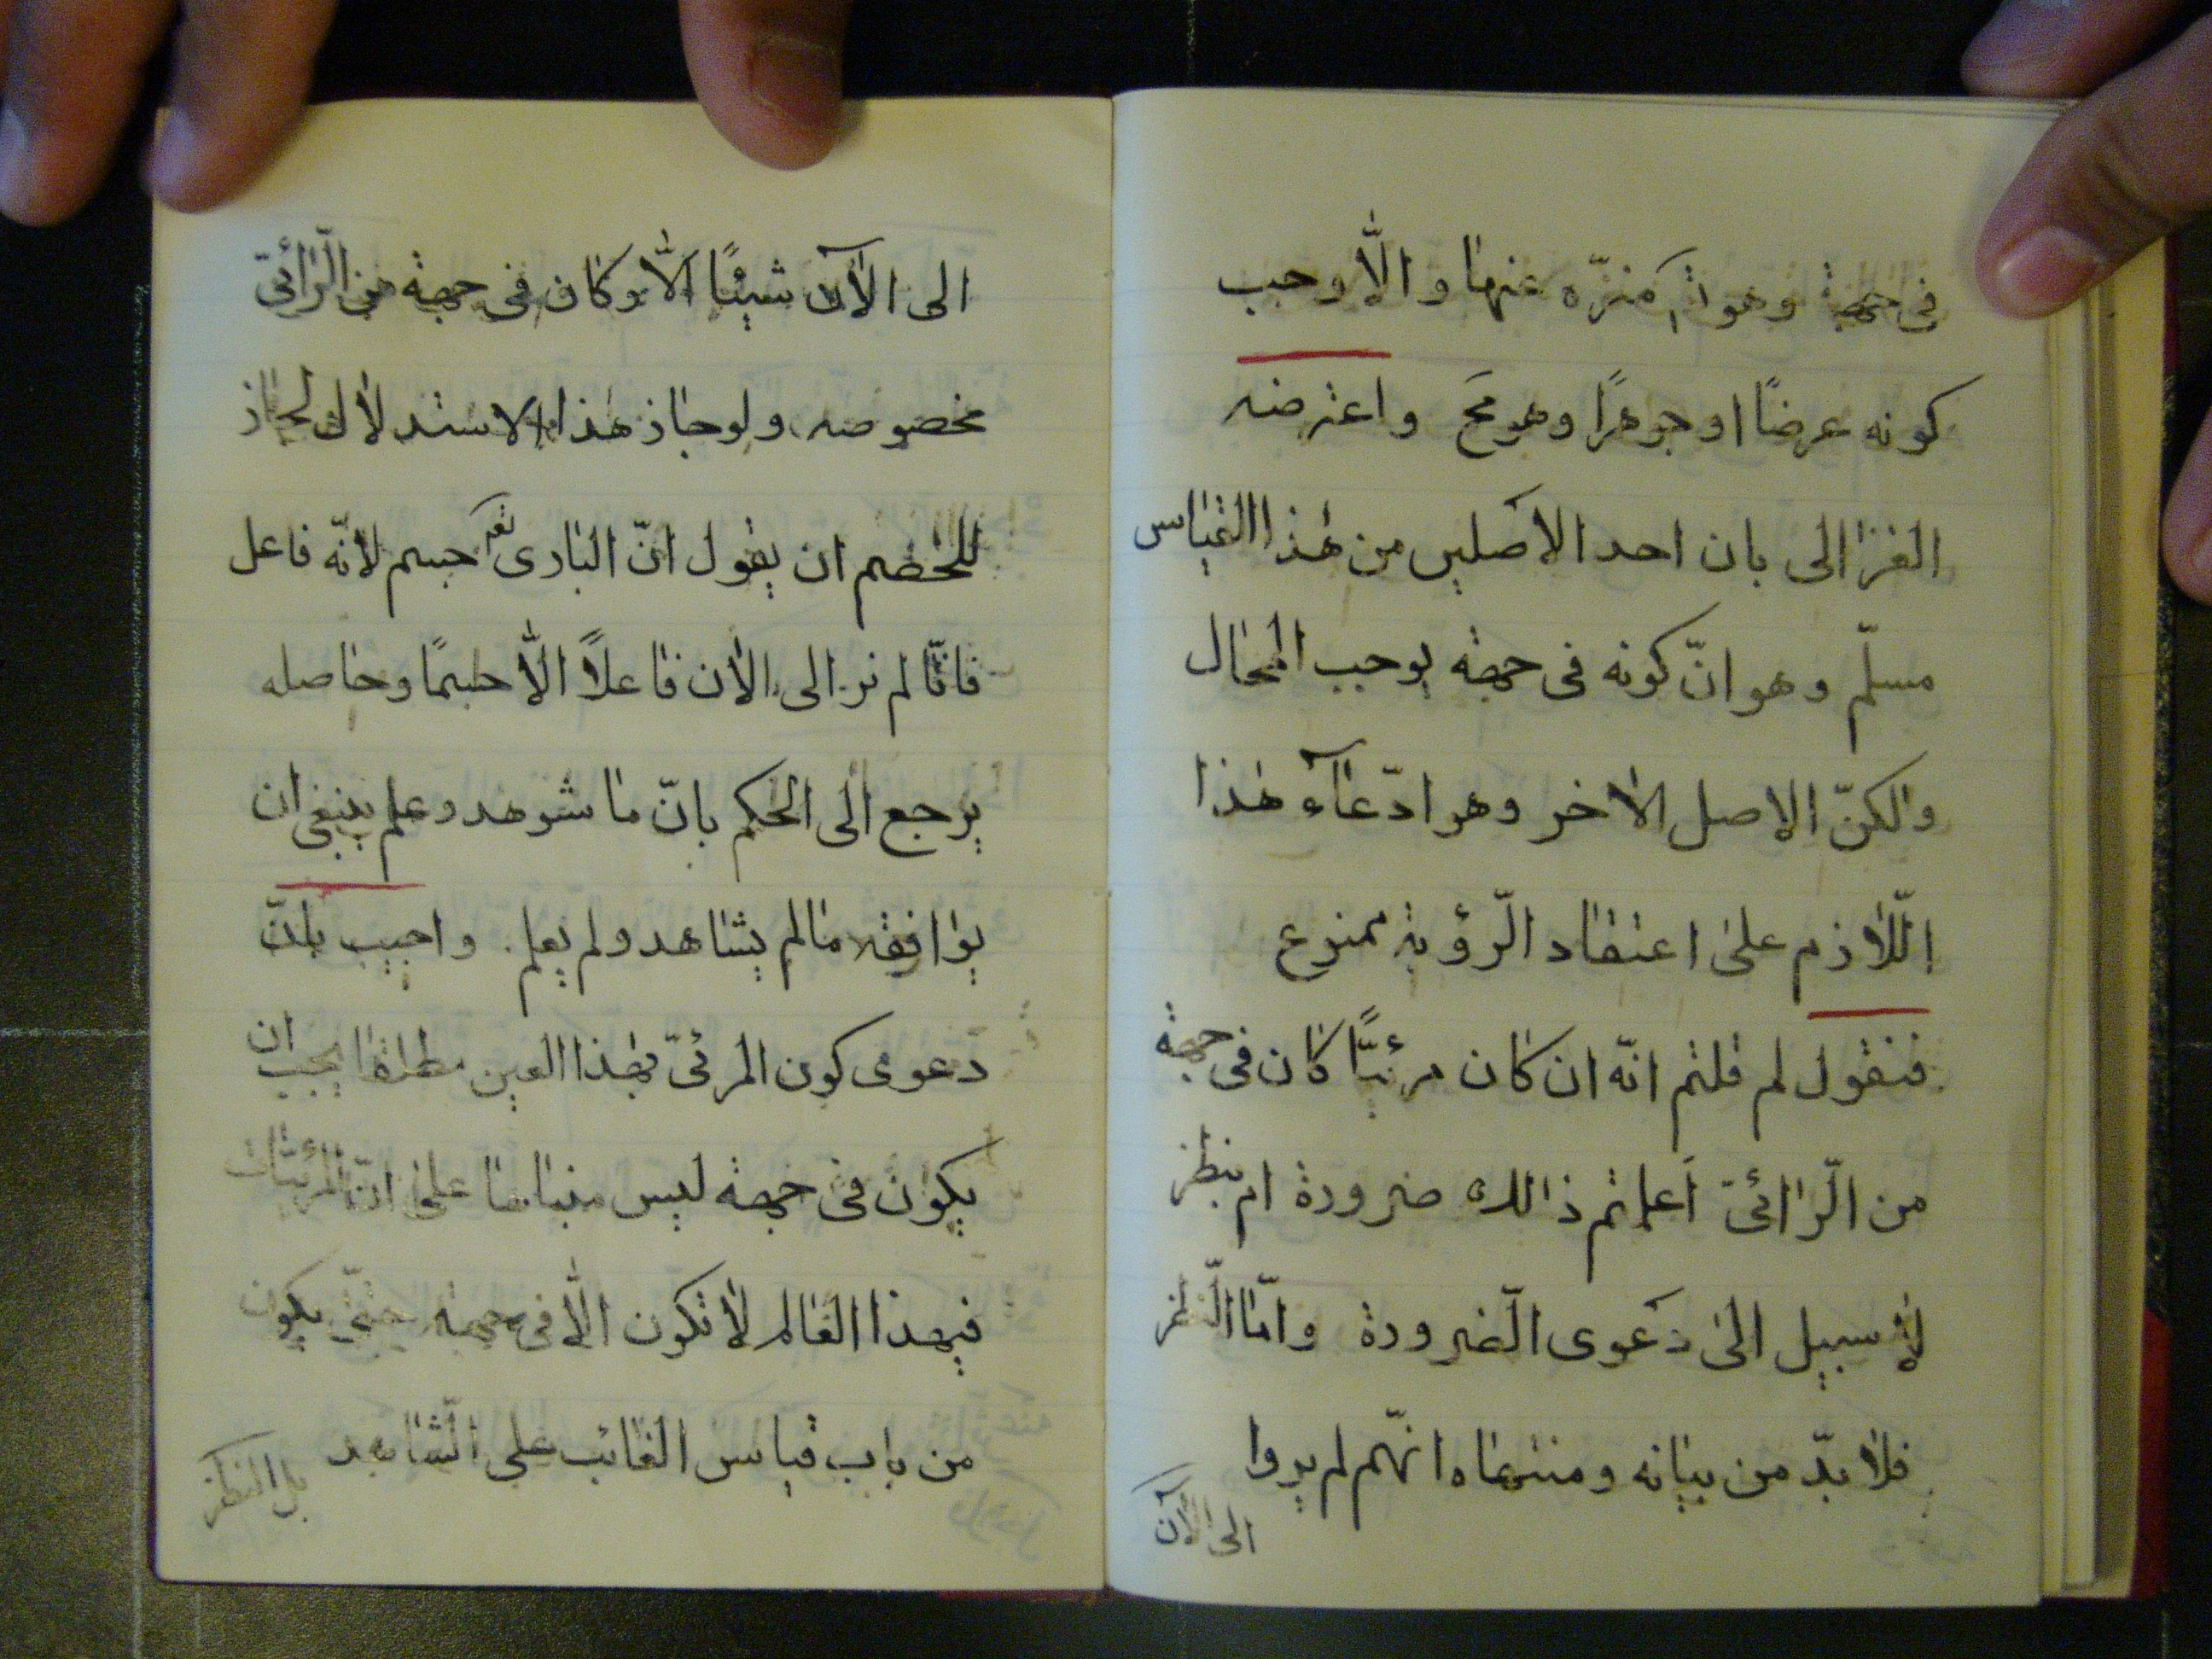 فى جهة وهو تع منزّه عنها والّا وجب
كونه عرضًا او جوهرًا وهو مح واعترضه
الغزالى بان احد الاصلين من هذا القياس
مسلّم وهو انّ كونه فى جهة يوجب المحال
والكنّ الاصل الاخر وهو ادّعآء هذا
الّلازم على اعتقاد الّرؤية ممنوع
فنقول لم قلتم انّه ان كان مرئيًّا كان فى جهة
من الّرائىّ أعلمتم ذالك ضرورة ام بنظر
لا سبيل الى دعوى الّضرورة وامّا الّنظر
فلا بدّ من بيانه ومنتهاه انّهم لم يروا
الى الآن
الى الآن شيئًا الّا وكان فى جهة من الّرائىّ
مخصوصه ولو جاز هذا الاستدلال لجاز
للخصم ان يقول انّ البارى تعم جسم لانّه فاعل
فانّا لم نر الى الان فاعلاً الّا جسمًا وحاصله
يرجع الى الحكم بانّ ما شوهد وعلم ينبغى ان
يوافقه ما لم يشاهد ولم يعلم. واجيب بانّ
دعوى كون المرئىّ بهذا العين مطلقا يجب ان
يكون فى جهة ليس مبنيا على انّ المرئيّات
فيهذا العالم لا تكون الّا فى جهة حتّى يكون
من باب قياس الغائب على الّشاهد
بل النظر